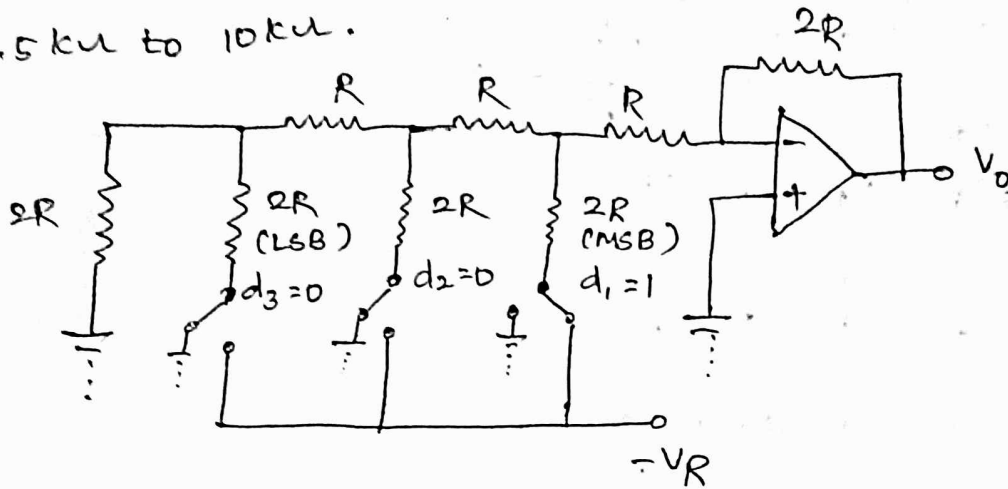 .5 kΩ to 10 kΩ.
2R
R R R
V₀
2R 2R (LSB) 2R 2R (MSB)
d₃=0 d₂=0 d₁=1
- +
-VR